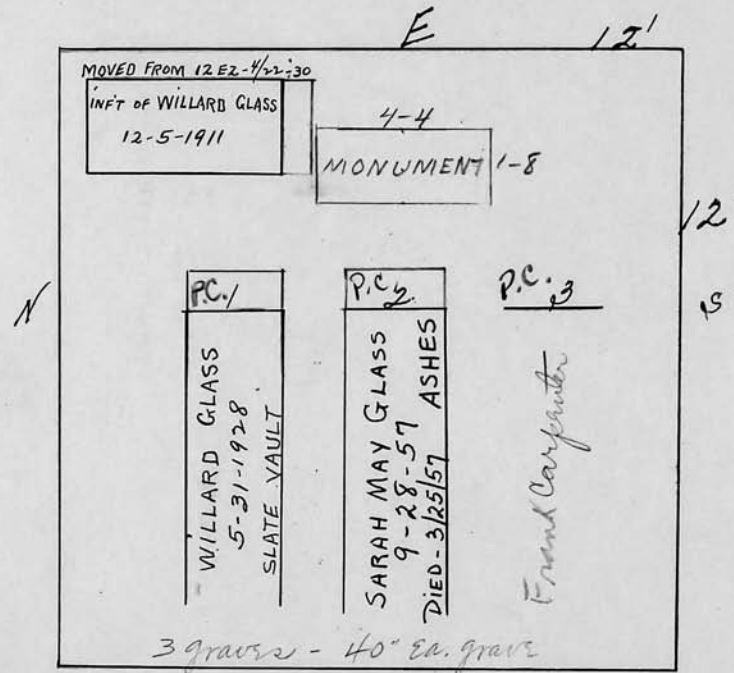 E
12'
MOVED FROM 12 EZ - 4/22-30
INF'T OF WILLARD GLASS
12-5-1911
4-4
MONUMENT 1-8
12
N
S
P.C. 1
WILLARD GLASS
5-31-1928
SLATE VAULT
P.C. 2
SARAH MAY GLASS
9-28-57 ASHES
DIED - 3/25/57
P.C. 3
Frank Carpenter
3 graves - 40" Ea. grave